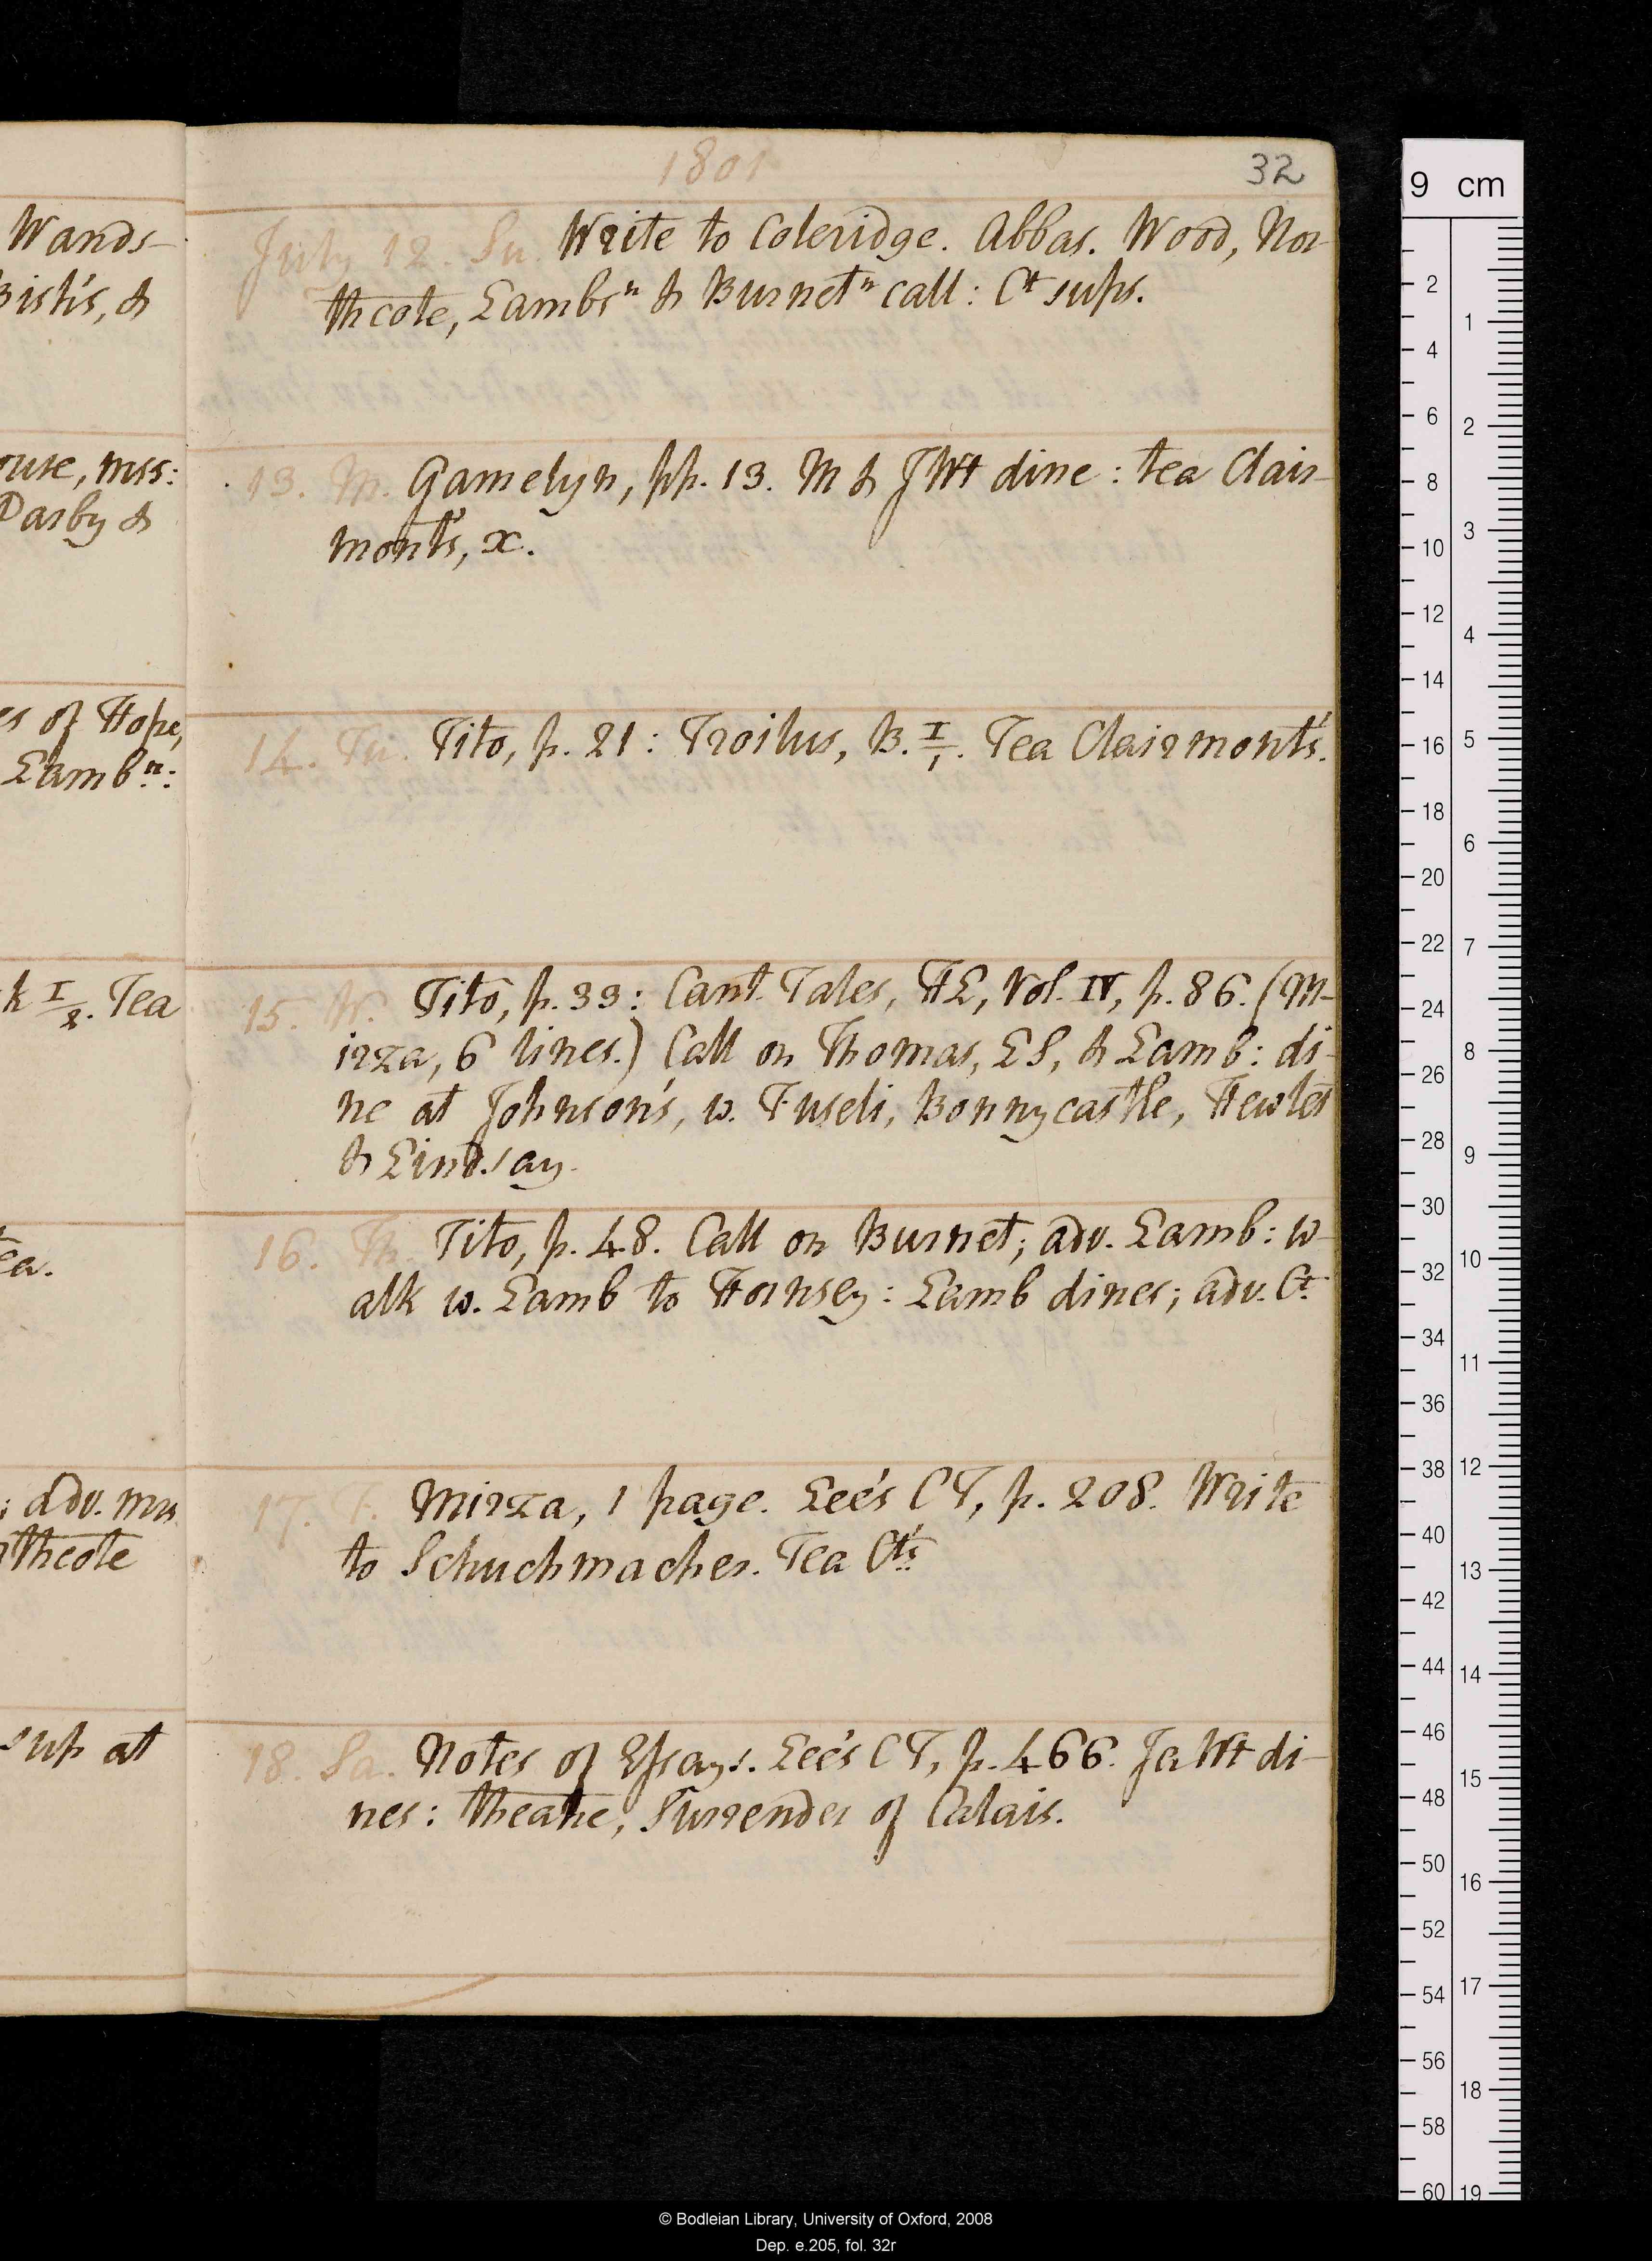 Wands-
Bish's, &
ouse, mss:
Darby &
es of Hope,
Lambⁿ:
k I/2. Tea
ea.
; adv. mrs
thcote
sup at
1801
32
July 12. Su. Write to Coleridge. Abbas. Wood, Nor-
thcote, Lambsⁿ & Burnetⁿ call: Ct sups.
13. M. Gamelyn, pp. 13. M & JWt dine: tea Clair-
mont's, x.
14. Tu. Tito, p. 21: Troilus, B. I/1. Tea Clairmont's.
15. W. Tito, p. 33: Cant. Tales, HL, Vol. IV, p. 86. (M-
irza, 6 lines.) Call on Thomas, LS, & Lamb: di-
ne at Johnson's, w. Fuseli, Bonnycastle, Hewlet
& Lindsay.
16. Th. Tito, p. 48. Call on Burnet; adv. Lamb: w-
alk w. Lamb to Hornsey: Lamb dines; adv. Ct
17. F. Mirza, 1 page. Lee's CT, p. 208. Write
to Schuchmacher. Tea Ct's
18. Sa. Notes of Essays. Lee's CT, p. 466. Ja Wt di-
nes: theatre, Surrender of Calais.
9 cm
2
4
6
8
10
12
14
16
18
20
22
24
26
28
30
32
34
36
38
40
42
44
46
48
50
52
54
56
58
60
1
2
3
4
5
6
7
8
9
10
11
12
13
14
15
16
17
18
19
© Bodleian Library, University of Oxford, 2008
Dep. e.205, fol. 32r